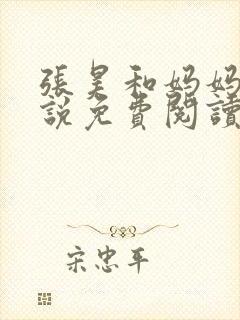 張昊和妈妈
說免費閱讀
宋忠平